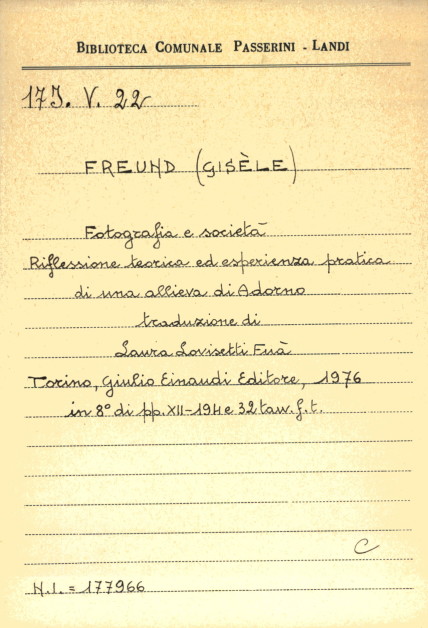 BIBLIOTECA COMUNALE PASSERINI - LANDI
173. V. 22
FREUND (GISÈLE)
Fotografia e società
Riflessione teorica ed esperienza pratica
di una allieva di Adorno
traduzione di
Laura Lovisetti Fuà
Torino, Giulio Einaudi Editore, 1976
in 8° di pp. XII-194 e 32 tav. f. t.
C
N.I. = 177966